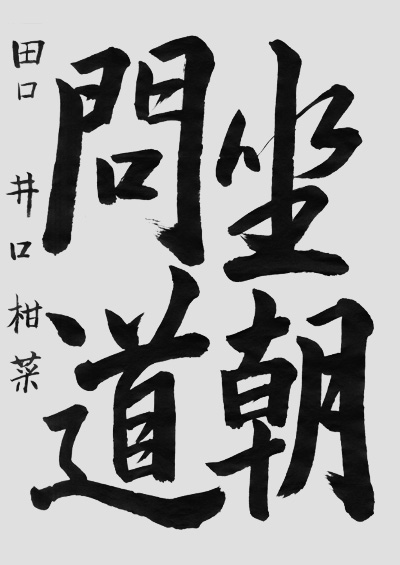 坐朝
問道
田口 井口 柑菜